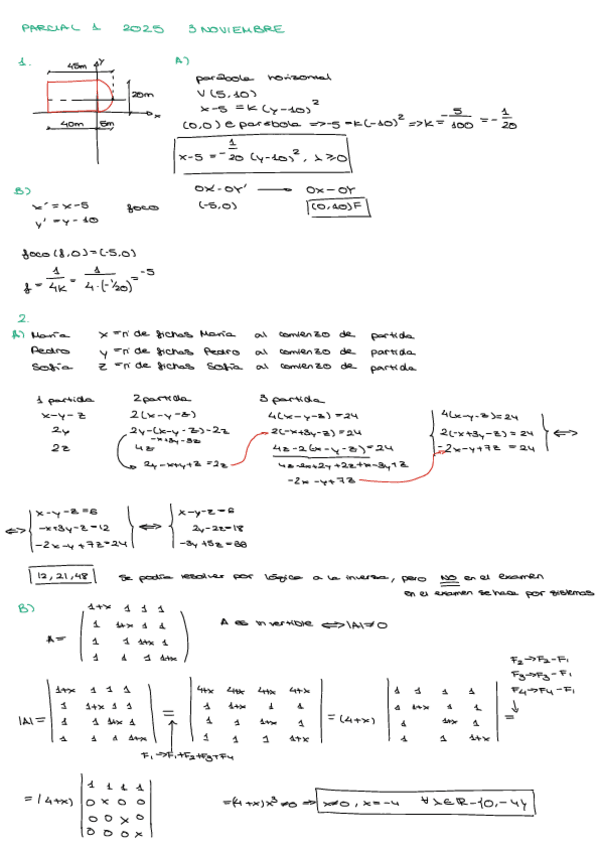 PARCIAL 1 2025 3 NOVIEMBRE
1.
A)
45m
Y
20m
x
40m 5m
parábola horizontal
V(5,10)
x-5 = k(y-10)²
(0,0) ∈ parábola => -5 = k(-10)² => k = -5/100 = -1/20
x-5 = -1/20 (y-10)², x≥0
B)
x' = x-5
y' = y-10
foco
OX'-OY' → OX-OY
(-5,0)
(0,10)F
foco (f,0) = (-5,0)
f = 1/4k = 1/4·(-1/20) = -5
2.
A) María x = nº de fichas María al comienzo de partida
Pedro y = nº de fichas Pedro al comienzo de partida
Sofía z = nº de fichas Sofía al comienzo de partida
1 partida 2 partida 3 partida
x-y-z 2(x-y-z) 4(x-y-z)=24
2y 2y-(x-y-z)-2z 2(-x+3y-z)=24
-x+3y-z
2z 4z 4z-2(x-y-z) =24
2y-x+y+z=2z
-2x-y+7z
4(x-y-z)=24
2(-x+3y-z)=24
-2x-y+7z=24
<=>
<=> x-y-z=6
-x+3y-z=12
-2x-y+7z=24
<=> x-y-z=6
2y-2z=18
12, 21, 48
Se podía resolver por lógica a la inversa, pero NO en el examen
en el examen se hace por sistemas
B)
A =
1+x 1 1 1
1 1+x 1 1
1 1 1+x 1
1 1 1 1+x
A es invertible <=> |A|≠0
F₂→F₂-F₁
F₃→F₃-F₁
F₄→F₄-F₁
|A| =
1+x 1 1 1
1 1+x 1 1
1 1 1+x 1
1 1 1 1+x
=
F₁→F₁+F₂+F₃+F₄
4+x 4+x 4+x 4+x
1 1+x 1 1
1 1 1+x 1
1 1 1 1+x
= (4+x)
1 1 1 1
1 1+x 1 1
1 1+x 1
1 1 1 1+x
=
= (4+x)
1 1 1 1
0 x 0 0
0 0 x 0
0 0 0 x
= (4+x)x³≠0 => x≠0, x=-4 ∀x∈R-{0,-4}